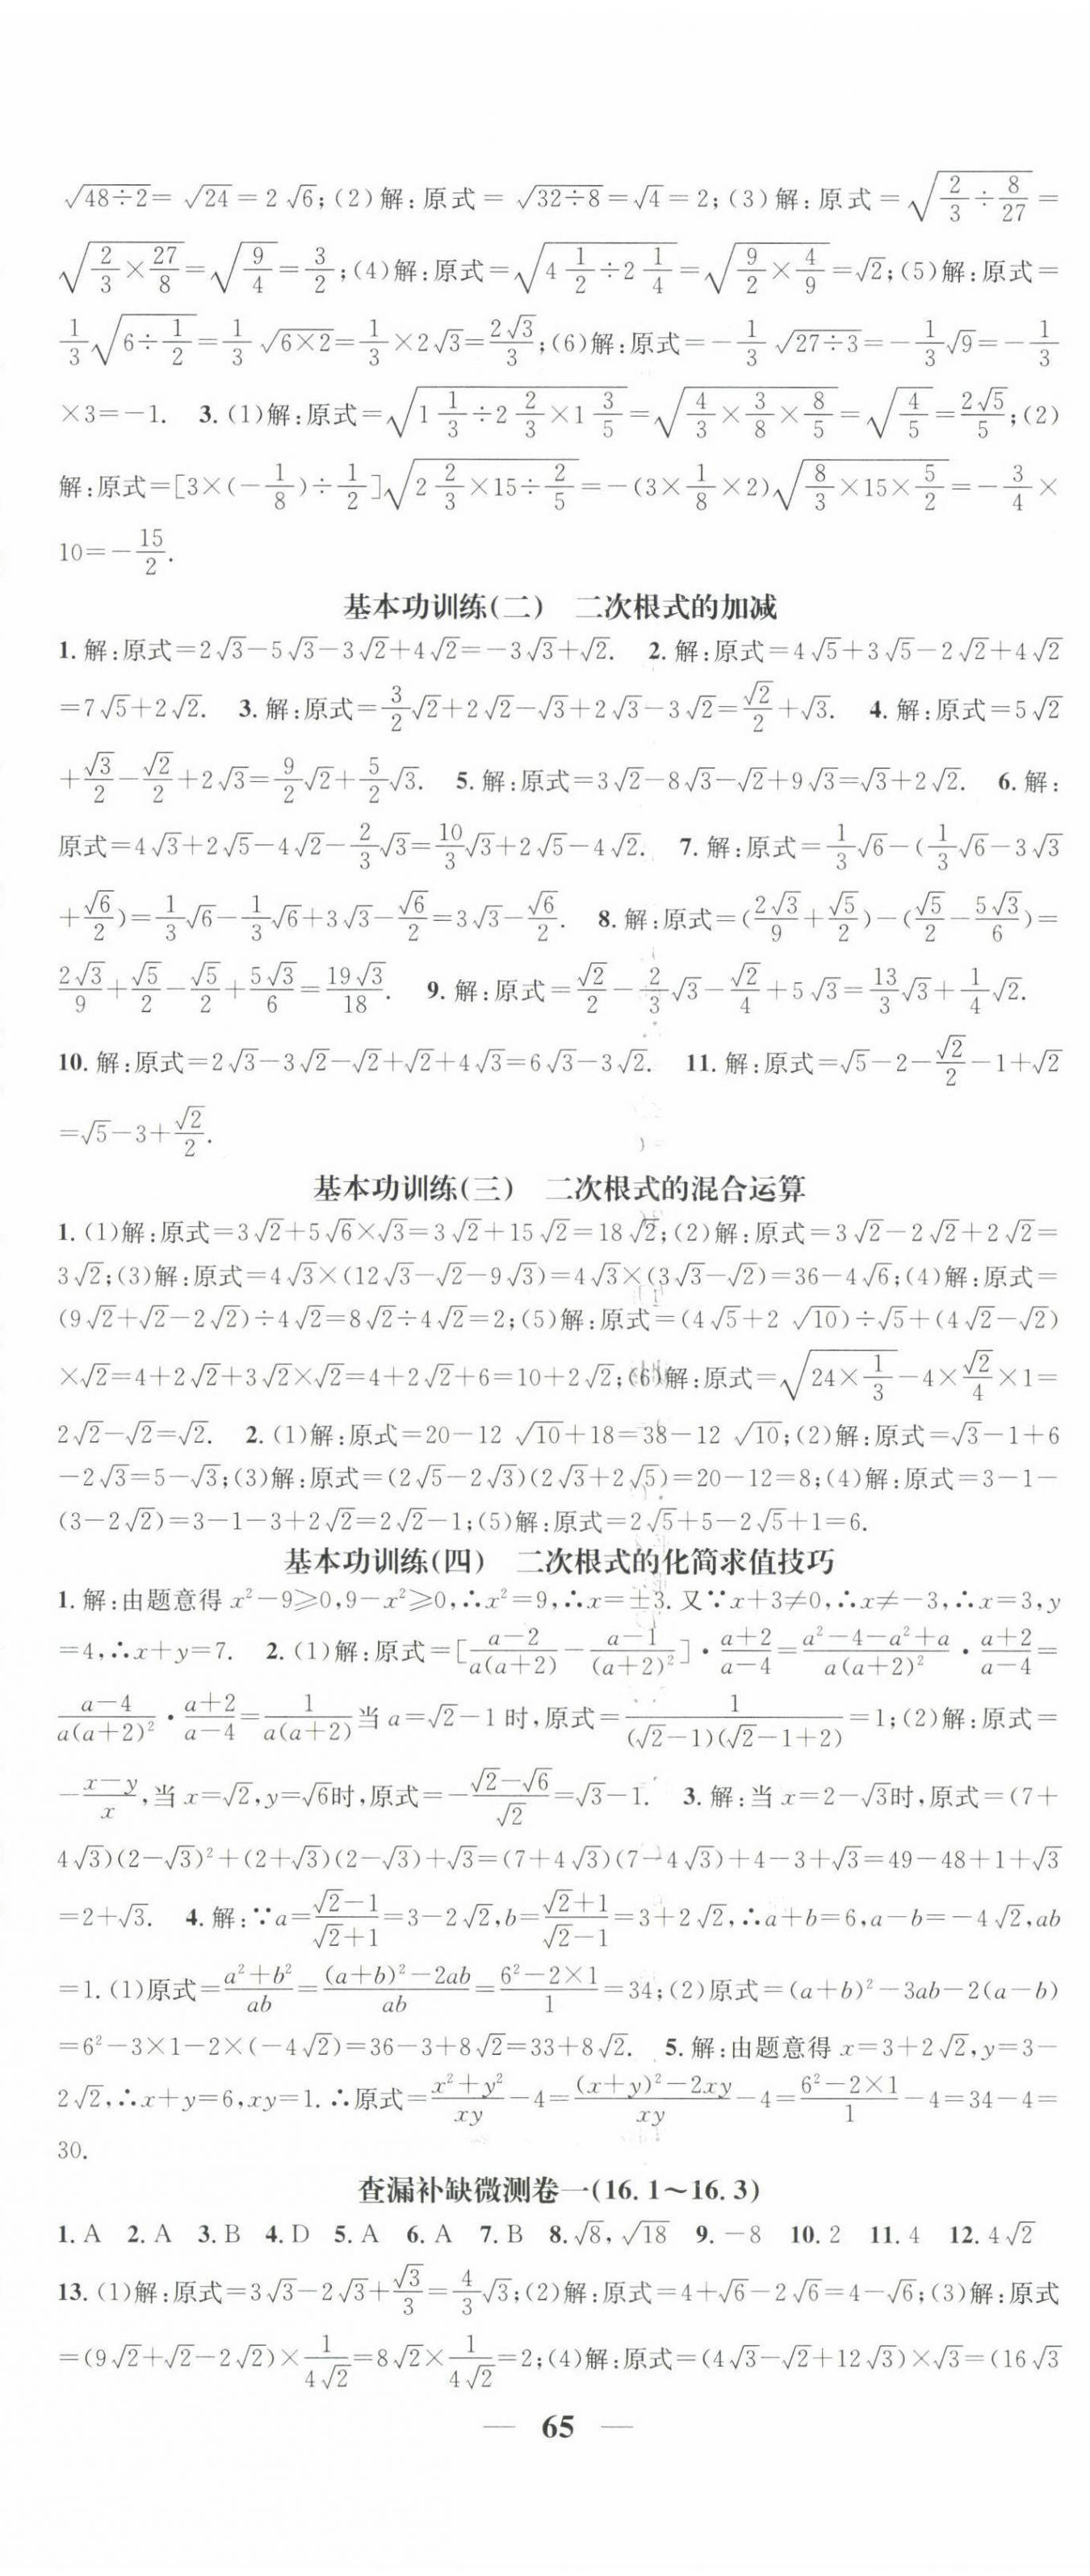 √(48÷2)=√24=2√6;(2)解:原式=√(32÷8)=√4=2;(3)解:原式=√(2/3÷8/27)=
√(2/3×27/8)=√(9/4)=3/2;(4)解:原式=√(4 1/2÷2 1/4)=√(9/2×4/9)=√2;(5)解:原式=
1/3√(6÷1/2)=1/3√(6×2)=1/3×2√3=2√3/3;(6)解:原式=-1/3√(27÷3)=-1/3√9=-1/3
×3=-1. 3.(1)解:原式=√(1 1/3÷2 2/3×1 3/5)=√(4/3×3/8×8/5)=√(4/5)=2√5/5;(2)
解:原式=[3×(-1/8)÷1/2]√(2 2/3×15÷2/5)=-(3×1/8×2)√(8/3×15×5/2)=-3/4×
10=-15/2.
基本功训练(二) 二次根式的加减
1.解:原式=2√3-5√3-3√2+4√2=-3√3+√2. 2.解:原式=4√5+3√5-2√2+4√2
=7√5+2√2. 3.解:原式=3/2√2+2√2-√3+2√3-3√2=√2/2+√3. 4.解:原式=5√2
+√3/2-√2/2+2√3=9/2√2+5/2√3. 5.解:原式=3√2-8√3-√2+9√3=√3+2√2. 6.解:
原式=4√3+2√5-4√2-2/3√3=10/3√3+2√5-4√2. 7.解:原式=1/3√6-(1/3√6-3√3
+√6/2)=1/3√6-1/3√6+3√3-√6/2=3√3-√6/2. 8.解:原式=(2√3/9+√5/2)-(√5/2-5√3/6)=
2√3/9+√5/2-√5/2+5√3/6=19√3/18. 9.解:原式=√2/2-2/3√3-√2/4+5√3=13/3√3+1/4√2.
10.解:原式=2√3-3√2-√2+√2+4√3=6√3-3√2. 11.解:原式=√5-2-√2/2-1+√2
=√5-3+√2/2.
基本功训练(三) 二次根式的混合运算
1.(1)解:原式=3√2+5√6×√3=3√2+15√2=18√2;(2)解:原式=3√2-2√2+2√2=
3√2;(3)解:原式=4√3×(12√3-√2-9√3)=4√3×(3√3-√2)=36-4√6;(4)解:原式=
(9√2+√2-2√2)÷4√2=8√2÷4√2=2;(5)解:原式=(4√5+2√10)÷√5+(4√2-√2)
×√2=4+2√2+3√2×√2=4+2√2+6=10+2√2;(6)解:原式=√(24×1/3)-4×√2/4×1=
2√2-√2=√2. 2.(1)解:原式=20-12√10+18=38-12√10;(2)解:原式=√3-1+6
-2√3=5-√3;(3)解:原式=(2√5-2√3)(2√3+2√5)=20-12=8;(4)解:原式=3-1-
(3-2√2)=3-1-3+2√2=2√2-1;(5)解:原式=2√5+5-2√5+1=6.
基本功训练(四) 二次根式的化简求值技巧
1.解:由题意得x²-9≥0,9-x²≥0,∴x²=9,∴x=±3.又∵x+3≠0,∴x≠-3,∴x=3,y
=4,∴x+y=7. 2.(1)解:原式=[(a-2)/(a(a+2))-(a-1)/(a+2)²]·(a+2)/(a-4)=(a²-4-a²+a)/(a(a+2)²)·(a+2)/(a-4)=
(a-4)/(a(a+2)²)·(a+2)/(a-4)=1/(a(a+2))当a=√2-1时,原式=1/((√2-1)(√2-1+2))=1;(2)解:原式=
-(x-y)/x,当x=√2,y=√6时,原式=-(√2-√6)/√2=√3-1. 3.解:当x=2-√3时,原式=(7+
4√3)(2-√3)²+(2+√3)(2-√3)+√3=(7+4√3)(7-4√3)+4-3+√3=49-48+1+√3
=2+√3. 4.解:∵a=(√2-1)/(√2+1)=3-2√2,b=(√2+1)/(√2-1)=3+2√2,∴a+b=6,a-b=-4√2,ab
=1.(1)原式=(a²+b²)/ab=((a+b)²-2ab)/ab=(6²-2×1)/1=34;(2)原式=(a+b)²-3ab-2(a-b)
=6²-3×1-2×(-4√2)=36-3+8√2=33+8√2. 5.解:由题意得x=3+2√2,y=3-
2√2,∴x+y=6,xy=1.∴原式=(x²+y²)/xy-4=((x+y)²-2xy)/xy-4=(6²-2×1)/1-4=34-4=
30.
查漏补缺微测卷一(16.1~16.3)
1.A 2.A 3.B 4.D 5.A 6.A 7.B 8.√8,√18 9.-8 10.2 11.4 12.4√2
13.(1)解:原式=3√3-2√3+√3/3=4/3√3;(2)解:原式=4+√6-2√6=4-√6;(3)解:原式
=(9√2+√2-2√2)×1/(4√2)=8√2×1/(4√2)=2;(4)解:原式=(4√3-√2+12√3)×√3=(16√3
— 65 —